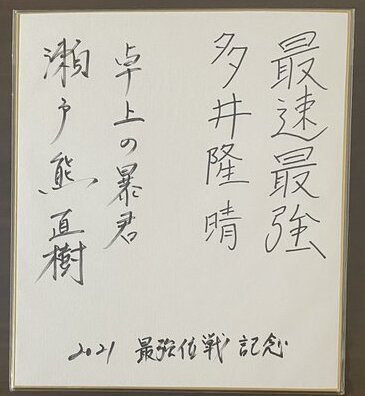 最速最強
多井隆晴
卓上の暴君
瀬戸熊直樹
2021 最強位戦 記念